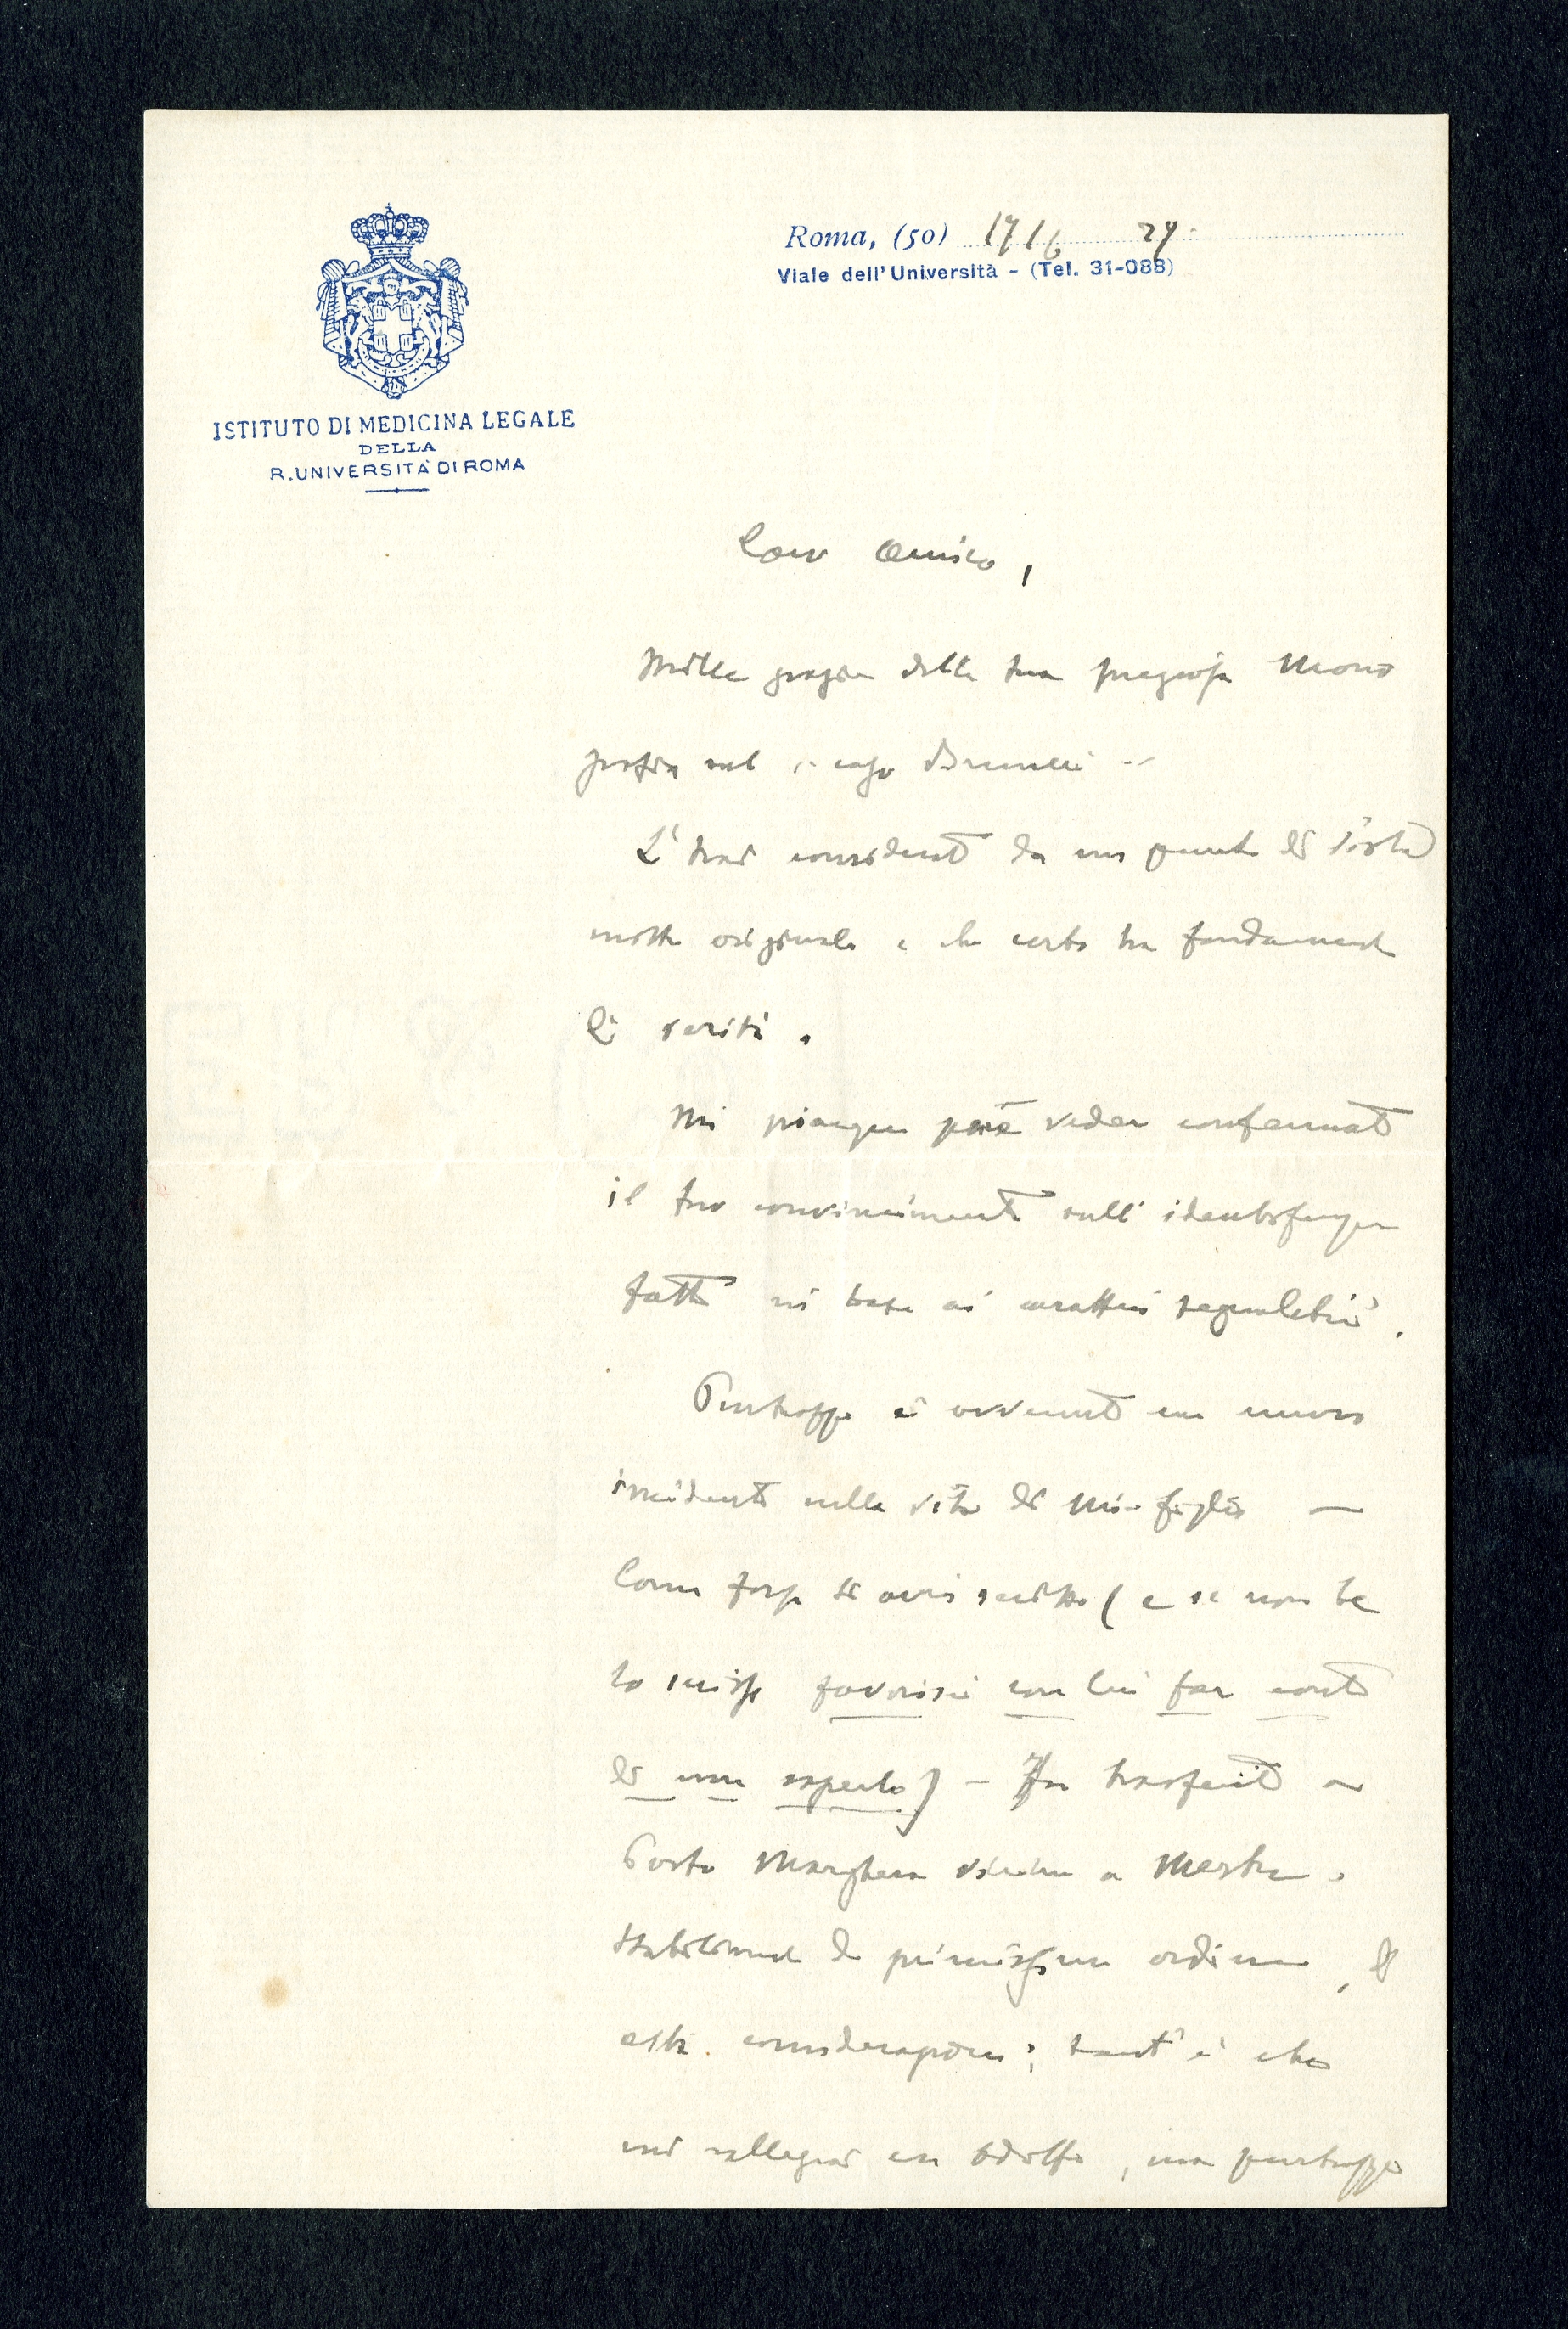 Roma, (50) 17/6 29.
Viale dell'Università - (Tel. 31-088)
ISTITUTO DI MEDICINA LEGALE
DELLA
R. UNIVERSITÀ DI ROMA
Caro Amico,
Mille grazie della tua pregiosa Mono
grafia sul " caso Bruneri "
L'hai considerato da un punto di vista
molto originale e che certo ha fondamento
di verità.
Mi piacque però veder confermato
il tuo convincimento sull'
fatta in base ai caratteri segnaletici.
Purtroppo è avvenuto un nuovo
incidente nella vita di mio figlio —
Come forse ti avrò scritto ( e se non te
lo scrissi favorisci con lui far conto
di non saperlo) - Fu trasferito a
Porto Marghera vicino a Mestre.
Stabilimento di primissimo ordine, di
alta considerazione; tant'è che
mi rallegrai con Adolfo, ma purtroppo